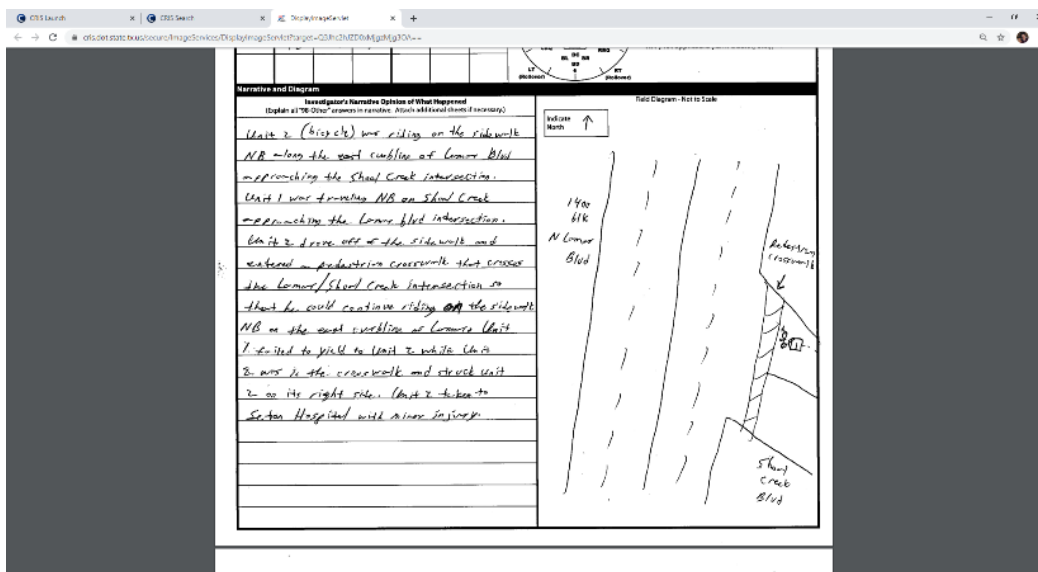 CRIS Launch
CRIS Search
DisplayImageServlet
LT
(Rollover)
RT
(Rollover)
Narrative and Diagram
Investigator's Narrative Opinion of What Happened
(Explain all "98-Other" answers in narrative. Attach additional sheets if necessary.)
Unit 2 (bicycle) was riding on the sidewalk
NB along the east curbline of Lamar Blvd
approaching the Shoal Creek intersection.
Unit 1 was traveling NB on Shoal Creek
approaching the Lamar blvd intersection.
Unit 2 drove off of the sidewalk and
entered a pedestrian crosswalk that crosses
the Lamar/Shoal Creek intersection so
that he could continue riding on the sidewalk
NB on the east curbline of Lamar. Unit
1 failed to yield to Unit 2 while Unit
2 was in the crosswalk and struck Unit
2 on its right side. Unit 2 taken to
Seton Hospital with minor injury.
Field Diagram - Not to Scale
Indicate
North
1400
blk
N Lamar
Blvd
Pedestrian
Crosswalk
1
Shoal
Creek
Blvd